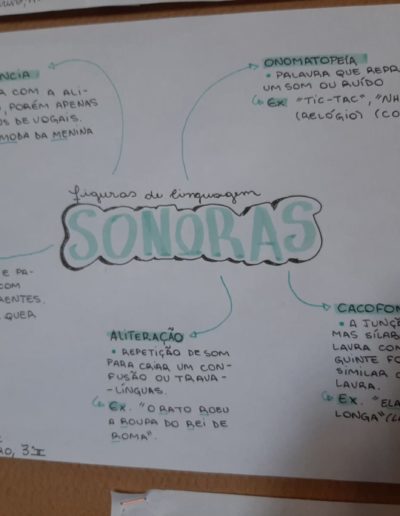 NCIA
R COM A ALI-
, PORÉM APENAS
S DE VOGAIS.
MODA DA MENINA
ONOMATOPEIA
• PALAVRA QUE REPR
UM SOM OU RUÍDO
Ex "TIC-TAC", "NH
(RELÓGIO) (CO
figuras de linguagem
SONORAS
E PA-
COM
RENTES.
QUER
ALITERAÇÃO
• REPETIÇÃO DE SOM
PARA CRIAR UM CON-
FUSÃO OU TRAVA-
-LÍNGUAS.
Ex. "O RATO ROEU
A ROUPA DO REI DE
ROMA".
CACOFON
• A JUNÇÃ
MAS SÍLAB
LAVRA COM
GUINTE FO
SIMILAR
LAVRA.
Ex. "ELA
LONGA" (L
O, 3ºI